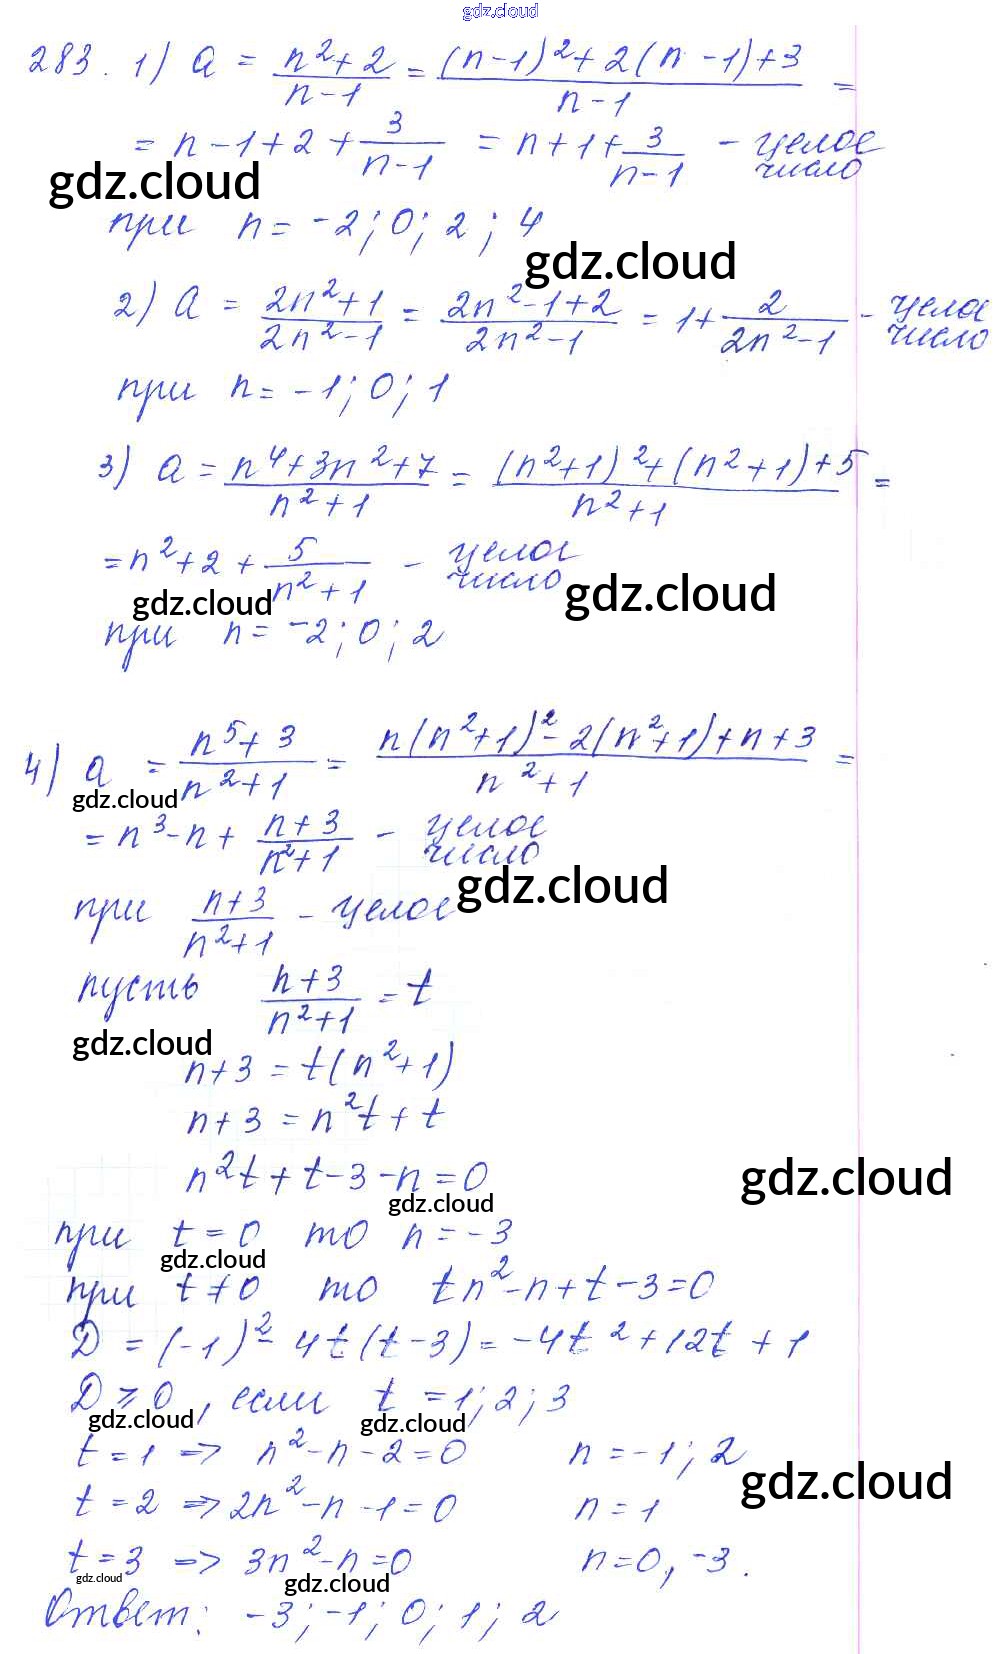 gdz.cloud
283. 1) a = (n²+2)/(n-1) = ((n-1)²+2(n-1)+3)/(n-1) =
= n-1+2+3/(n-1) = n+1+3/(n-1) - целое число
gdz.cloud
при n = -2; 0; 2; 4
gdz.cloud
2) a = (2n²+1)/(2n²-1) = (2n²-1+2)/(2n²-1) = 1+2/(2n²-1) - целое число
при n = -1; 0; 1
3) a = (n⁴+3n²+7)/(n²+1) = ((n²+1)²+(n²+1)+5)/(n²+1) =
= n²+2+5/(n²+1) - целое число
gdz.cloud gdz.cloud
при n = -2; 0; 2
4) a = (n⁵+3)/(n²+1) = (n(n²+1)²-2(n²+1)+n+3)/(n²+1) =
gdz.cloud
= n³-n+(n+3)/(n²+1) - целое число
gdz.cloud
при (n+3)/(n²+1) - целое
пусть (n+3)/(n²+1) = t
gdz.cloud
n+3 = t(n²+1)
n+3 = n²t+t
n²t+t-3-n=0
gdz.cloud
gdz.cloud
при t=0 то n=-3
gdz.cloud
при t≠0 то tn²-n+t-3=0
D = (-1)²-4t(t-3) = -4t²+12t+1
D ≥ 0, если t = 1; 2; 3
gdz.cloud gdz.cloud
t=1 => n²-n-2=0 n=-1; 2
gdz.cloud
t=2 => 2n²-n-1=0 n=1
t=3 => 3n²-n=0 n=0, -3.
gdz.cloud gdz.cloud
Ответ: -3; -1; 0; 1; 2